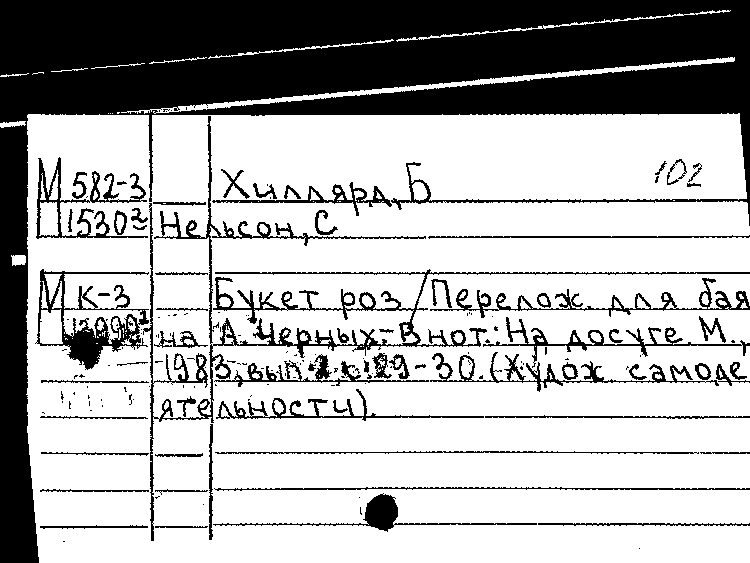 102
М 582-3 Хиллярд, Б
1530² Нельсон, С
М К-3 Букет роз / Перелож. для бая
на А. Черных.- В нот.: На досуге. М.,
1983, вып. 2, с. 29-30. (Худож. самоде
ятельности).